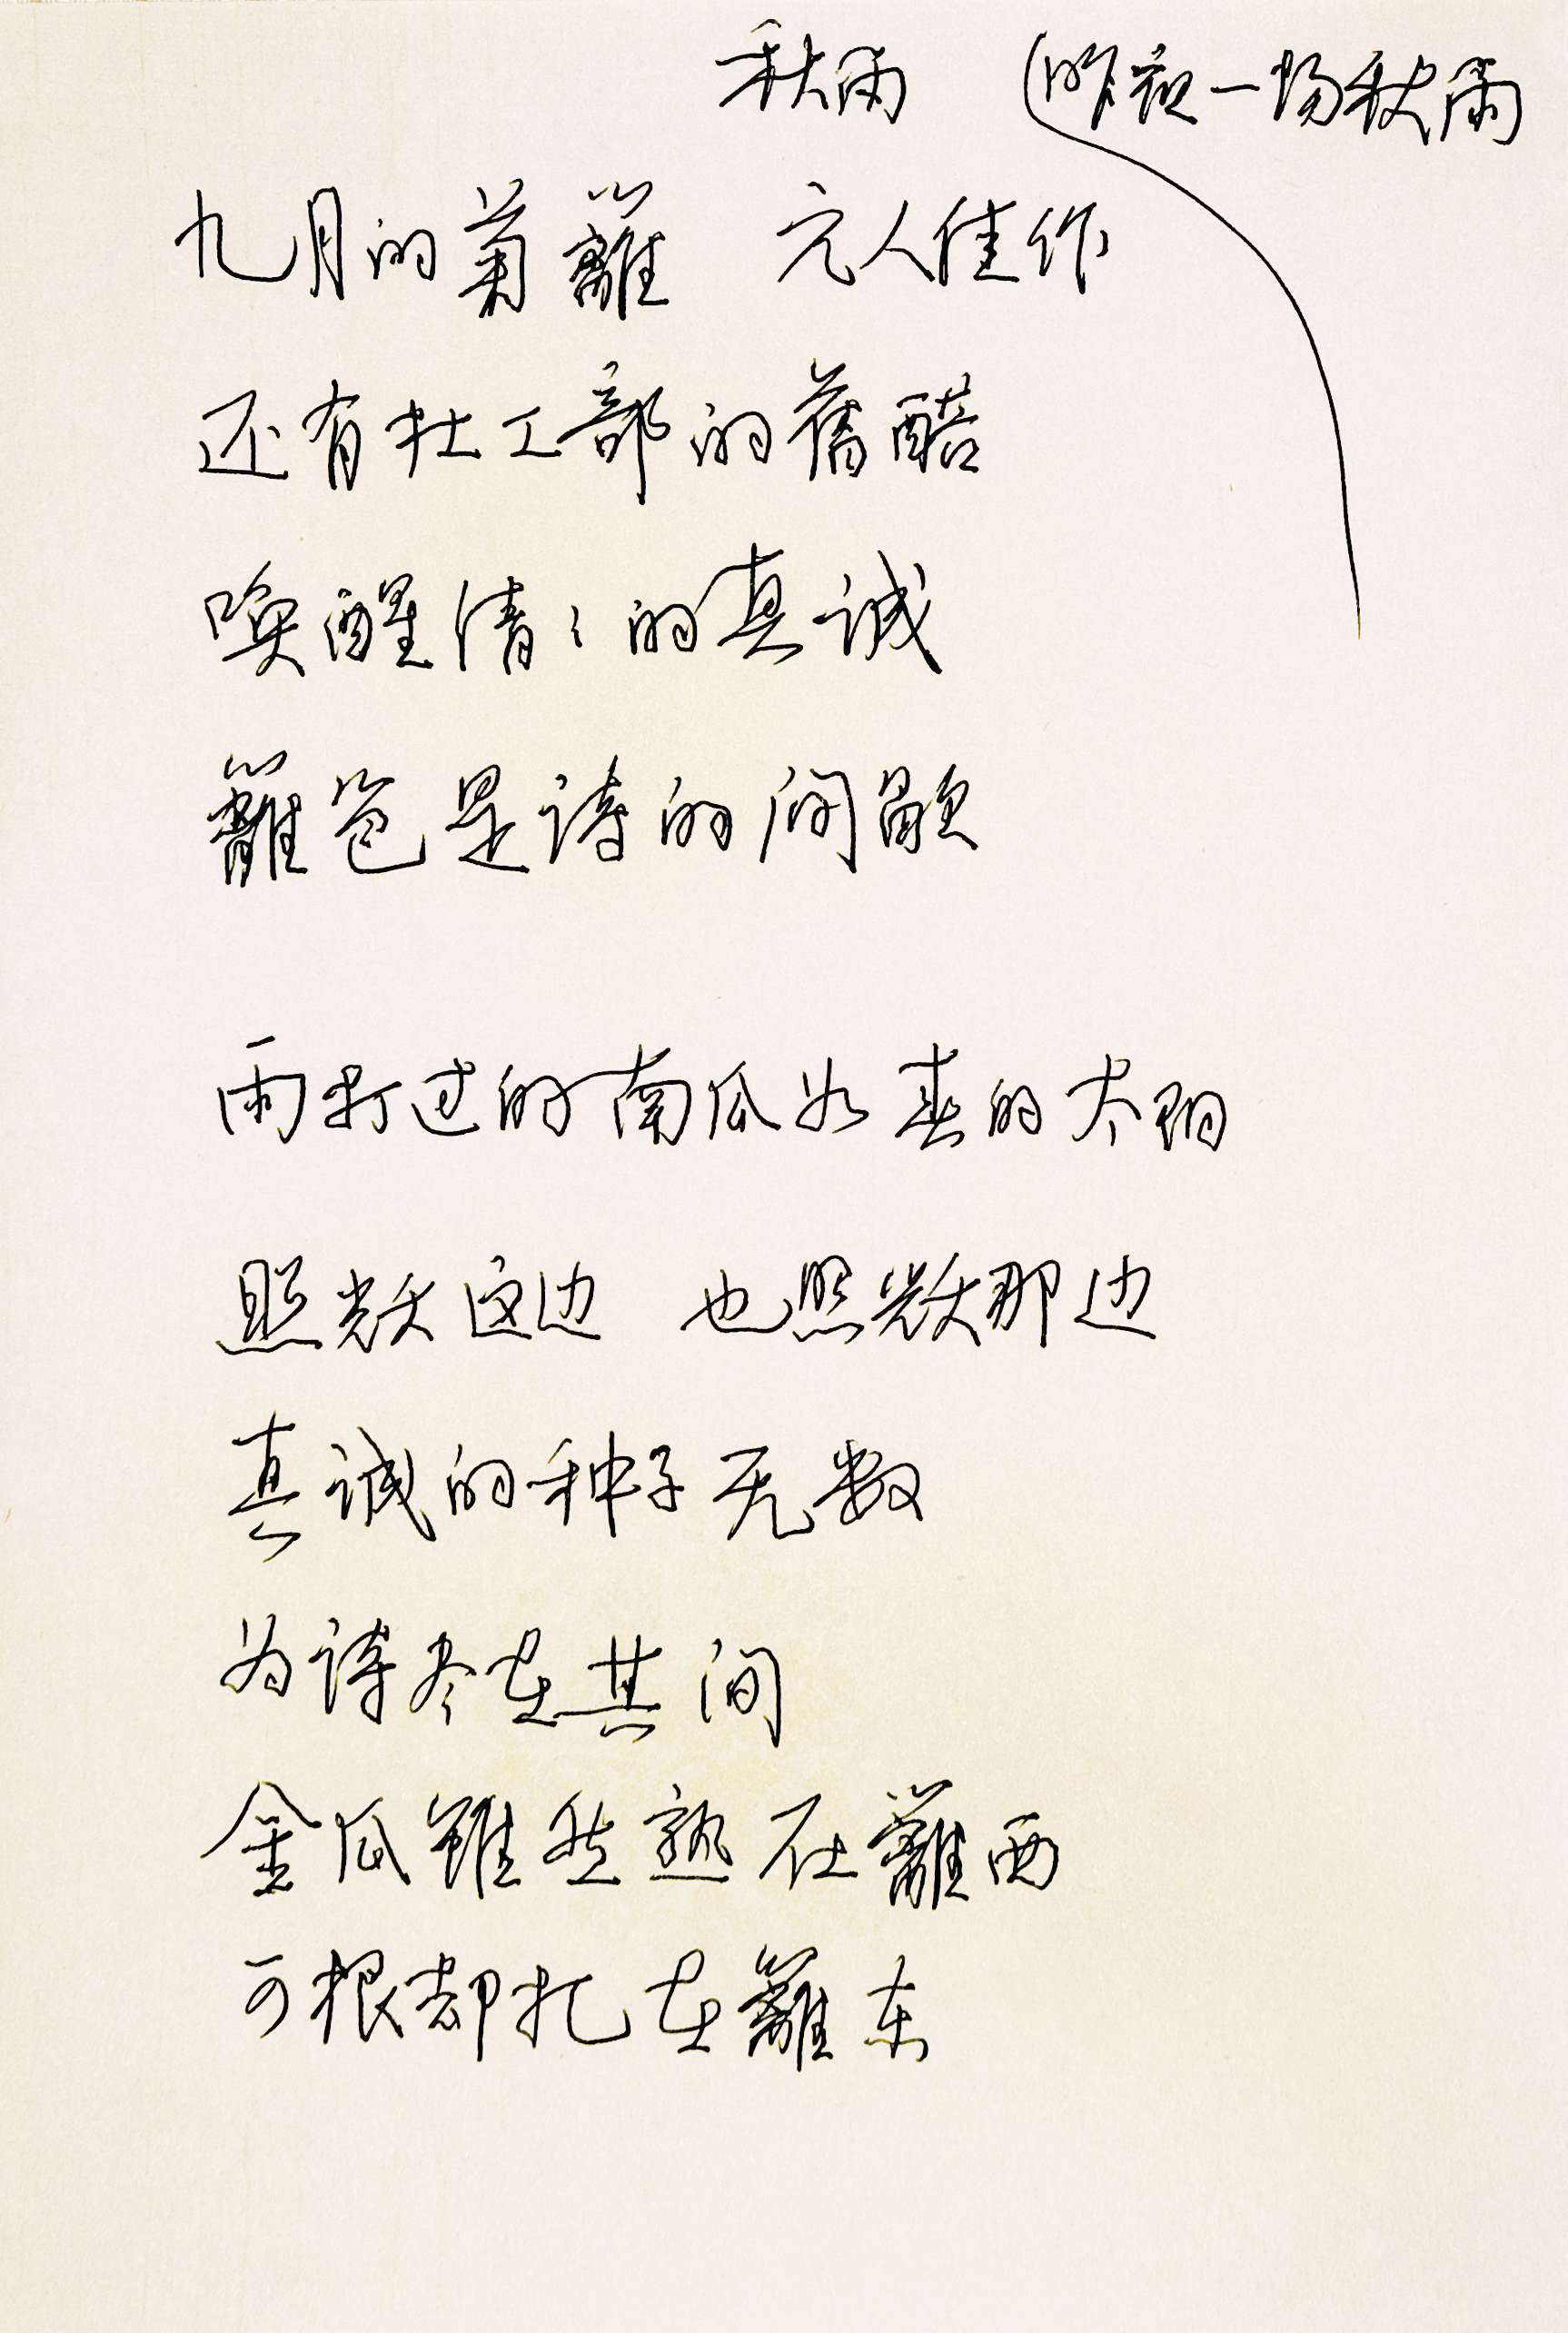 秋雨 (昨夜一场秋雨
九月的菊籬 元人佳作
还有杜工部的舊醅
唤醒清々的真诚
籬笆是诗的间歇
雨打过的南瓜如素的太阳
照耀这边 也照耀那边
真诚的种子无数
为诗尽在其间
金瓜雖然熟在籬西
可根却扎在籬东